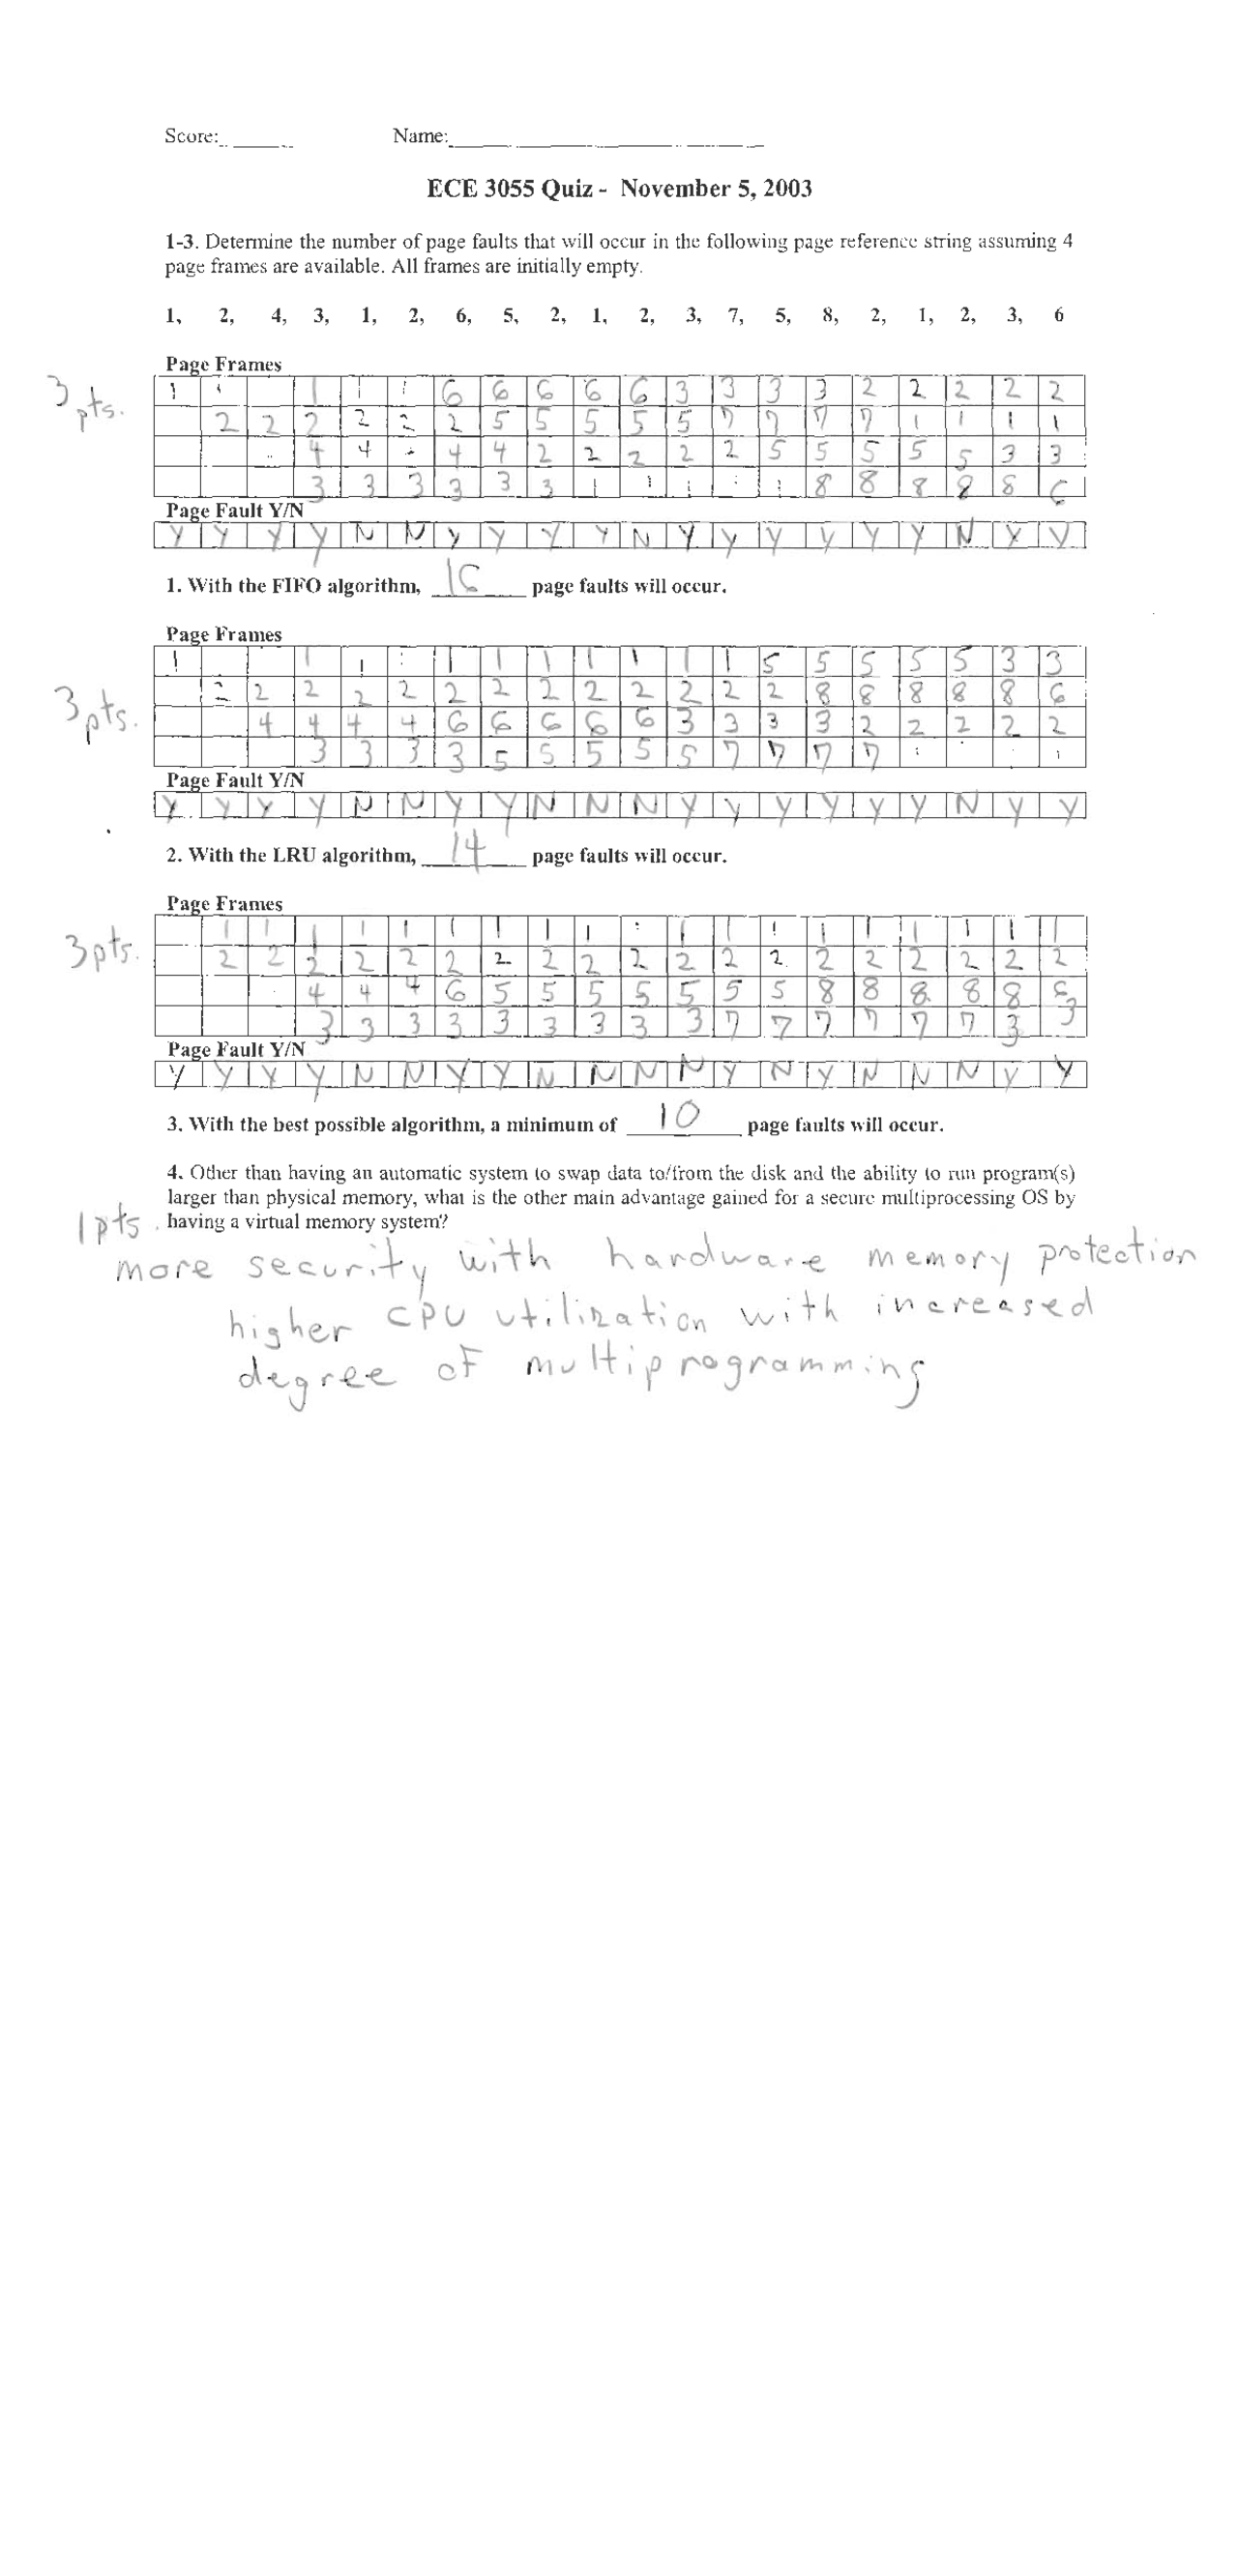 Score: Name:
ECE 3055 Quiz - November 5, 2003
1-3. Determine the number of page faults that will occur in the following page reference string assuming 4
page frames are available. All frames are initially empty.
1, 2, 4, 3, 1, 2, 6, 5, 2, 1, 2, 3, 7, 5, 8, 2, 1, 2, 3, 6
Page Frames
3 pts.
1 1 1 1 6 6 6 6 6 3 3 3 3 2 2 2 2 2
2 2 2 2 2 2 5 5 5 5 5 7 7 7 7 1 1 1 1
4 4 4 4 2 2 2 2 2 5 5 5 5 5 3 3
3 3 3 3 3 3 1 1 8 8 8 8 8 6
Page Fault Y/N
Y Y Y Y N N Y Y Y Y N Y Y Y Y Y Y N Y Y
1. With the FIFO algorithm, 16 page faults will occur.
Page Frames
3 pts.
1 1 1 1 1 1 1 1 1 1 1 5 5 5 5 5 3 3
2 2 2 2 2 2 2 2 2 2 2 2 2 8 8 8 8 8 6
4 4 4 4 6 6 6 6 6 3 3 3 3 2 2 2 2 2
3 3 3 3 5 5 5 5 5 7 7 7 7 1
Page Fault Y/N
Y Y Y Y N N Y Y N N N Y Y Y Y Y Y N Y Y
2. With the LRU algorithm, 14 page faults will occur.
Page Frames
3 pts.
1 1 1 1 1 1 1 1 1 1 1 1 1 1 1 1 1 1
2 2 2 2 2 2 2 2 2 2 2 2 2 2 2 2 2 2 2
4 4 4 6 5 5 5 5 5 5 5 8 8 8 8 8 6
3 3 3 3 3 3 3 3 3 7 7 7 7 7 7 3 3
Page Fault Y/N
Y Y Y Y N N Y Y N N N N Y N Y N N N Y Y
3. With the best possible algorithm, a minimum of 10 page faults will occur.
4. Other than having an automatic system to swap data to/from the disk and the ability to run program(s)
larger than physical memory, what is the other main advantage gained for a secure multiprocessing OS by
1pts. having a virtual memory system?
more security with hardware memory protection
higher CPU utilization with increased
degree of multiprogramming